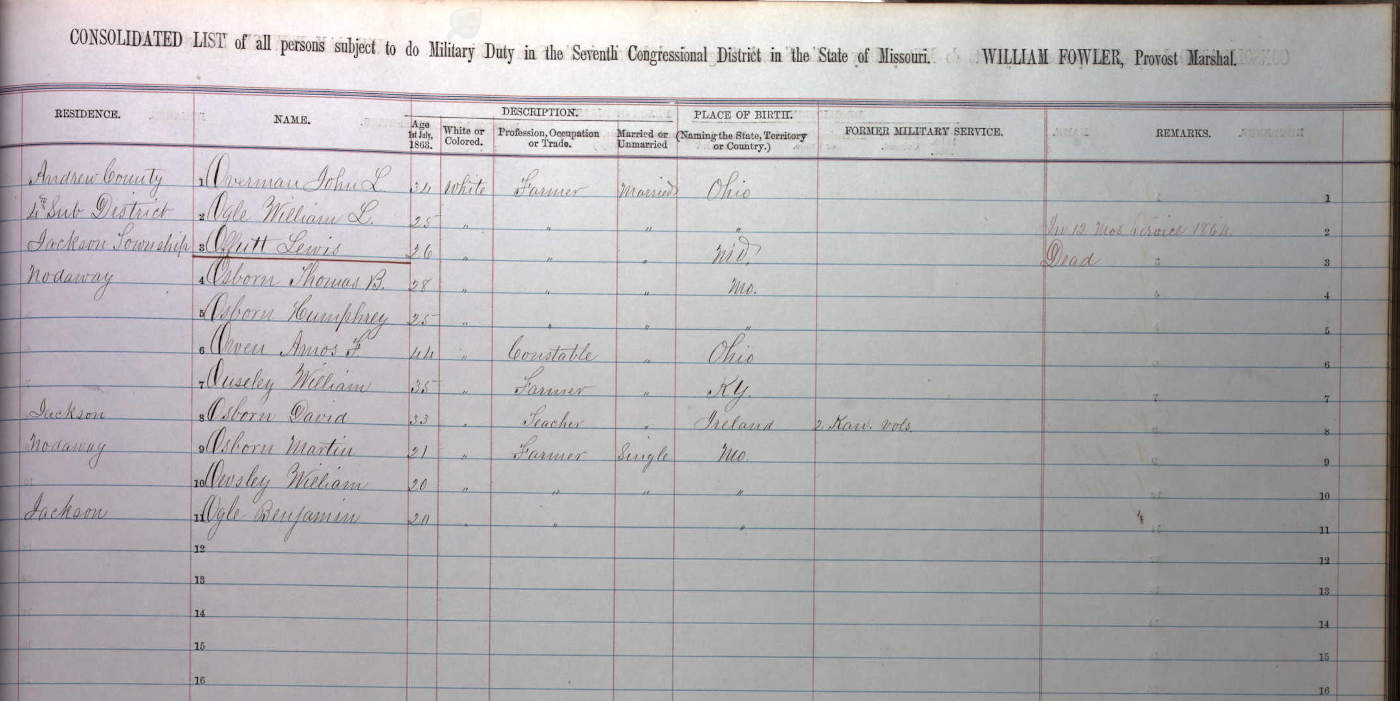 CONSOLIDATED LIST of all persons subject to do Military Duty in the Seventh Congressional District in the State of Missouri. WILLIAM FOWLER, Provost Marshal.
RESIDENCE. NAME. DESCRIPTION. PLACE OF BIRTH. FORMER MILITARY SERVICE. REMARKS.
Age 1st July, 1863. White or Colored. Profession, Occupation or Trade. Married or Unmarried (Naming the State, Territory or Country.)
Andrew County 1 Overman John L 34 White Farmer Married Ohio 1
4th Sub District 2 Ogle William L. 25 " " " " In 12 Mos Service 1864 2
Jackson Township 3 Offutt Lewis 26 " " " Md. Dead 3
Nodaway 4 Osborn Thomas B. 28 " " " Mo. 4
5 Osborn Humphrey 25 " " " " 5
6 Owen Amos F 44 " Constable " Ohio 6
7 Ouseley William 35 " Farmer " Ky. 7
Jackson 8 Osborn David 33 " Teacher " Ireland 2 Kan. Vols. 8
Nodaway 9 Osborn Martin 21 " Farmer Single Mo. 9
10 Owsley William 20 " " " " 10
Jackson 11 Ogle Benjamin 20 " " " 11
12 12
13 13
14 14
15 15
16 16